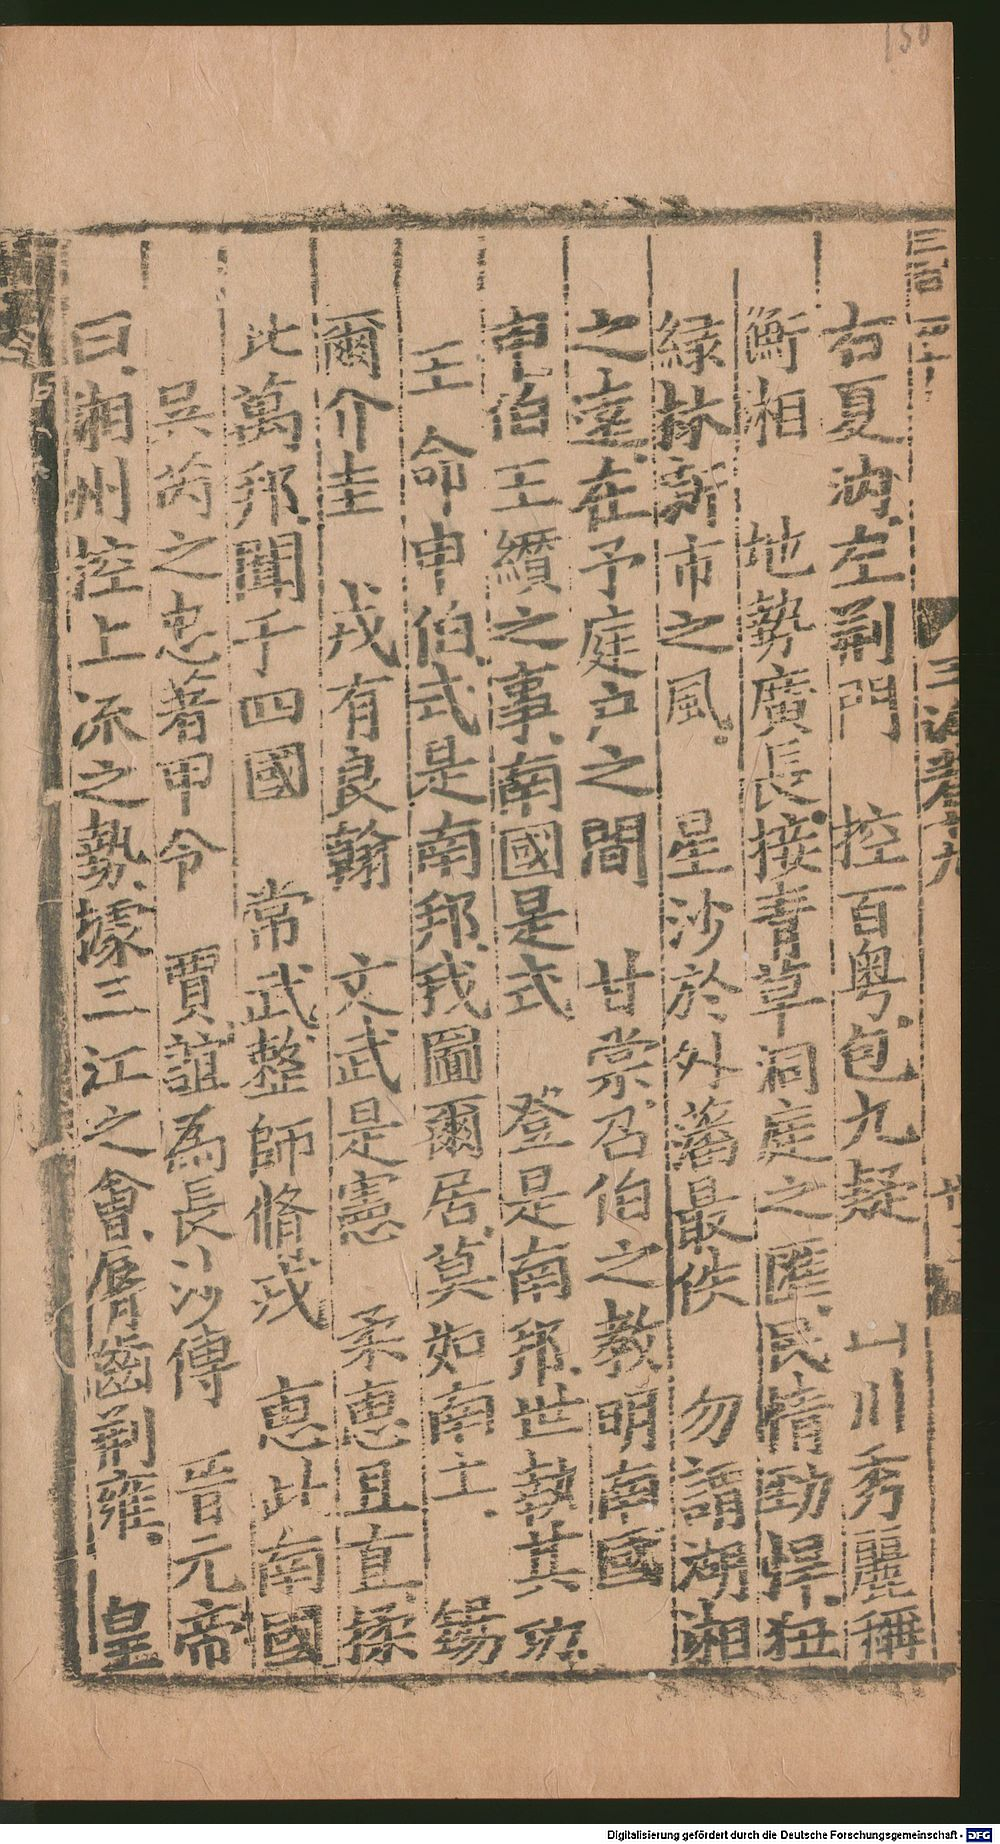 150
右夏汭左荊門　控百粤包九疑　山川秀麗稱
衡湘　地勢廣長接青草洞庭之匯民情勁悍狃
緑林新市之風　星沙於外藩最佚　勿謂湖湘
之遠在予庭户之間　甘棠召伯之教明南國
申伯王纘之事南國是式　登是南邦世執其功
王命申伯式是南邦我圖爾居莫如南土　錫
爾介圭　戎有良翰　文武是憲　柔惠且直揉
此萬邦聞于四國　常武整師脩戎　惠此南國
吴芮之忠著甲令　賈誼為長沙傅　晉元帝
曰湘州控上流之勢據三江之會脣齒荊雍　皇
Digitalisierung gefördert durch die Deutsche Forschungsgemeinschaft - DFG